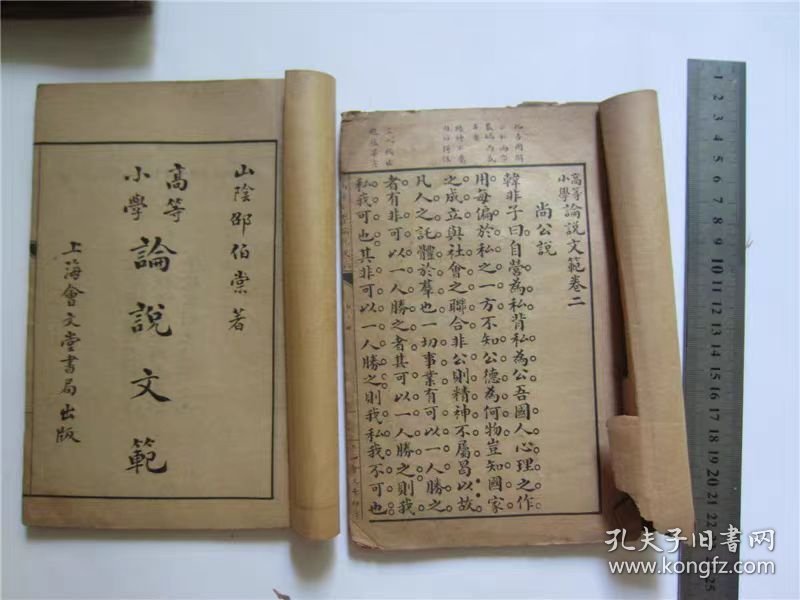 山陰邵伯棠著
高等
小學
論說文範
上海會文堂書局出版
高等
小學
論說文範卷二
尚公說
韓非子曰自營為私背私為公吾國人心理之作
用每偏於私之一方不知公德為何物豈知國家
之成立與社會之聯合非公則精神不屬曷以故
凡人之託體於羣也一切事業有可以一人勝之
者有非可以一人勝之者其可以一人勝之則我
私我可也其非可以一人勝之則我私我不可也
1
2
3
4
5
6
7
8
9
10
11
12
13
14
15
16
17
18
19
20
21
22
25
孔夫子旧書网
www.kongfz.com